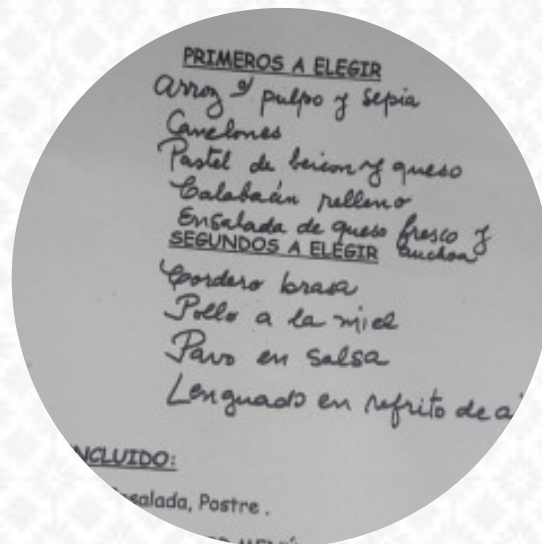 PRIMEROS A ELEGIR
Arroz c/ pulpo y sepia
Canelones
Pastel de beicon y queso
Calabacín relleno
Ensalada de queso fresco y
anchoa
SEGUNDOS A ELEGIR
Cordero brasa
Pollo a la miel
Pavo en salsa
Lenguado en refrito de a
NCLUIDO:
salada, Postre .